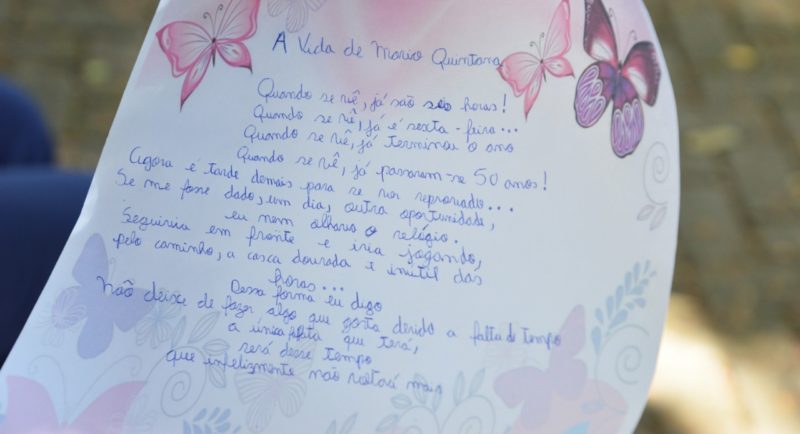 A Vida de Mario Quintana
Quando se vê, já são seis horas!
Quando se vê, já é sexta-feira...
Quando se vê, já terminou o ano
Quando se vê, já passaram-se 50 anos!
Agora é tarde demais para se ser reprovado...
Se me fosse dado, um dia, outra oportunidade,
eu nem olhava o relógio.
Seguiria em frente e iria jogando,
pelo caminho, a casca dourada e inutil das
horas...
Dessa forma eu digo
Não deixe de fazer algo que gosta devido a falta de tempo
a única falta que terá,
será desse tempo
que infelizmente não voltará mais